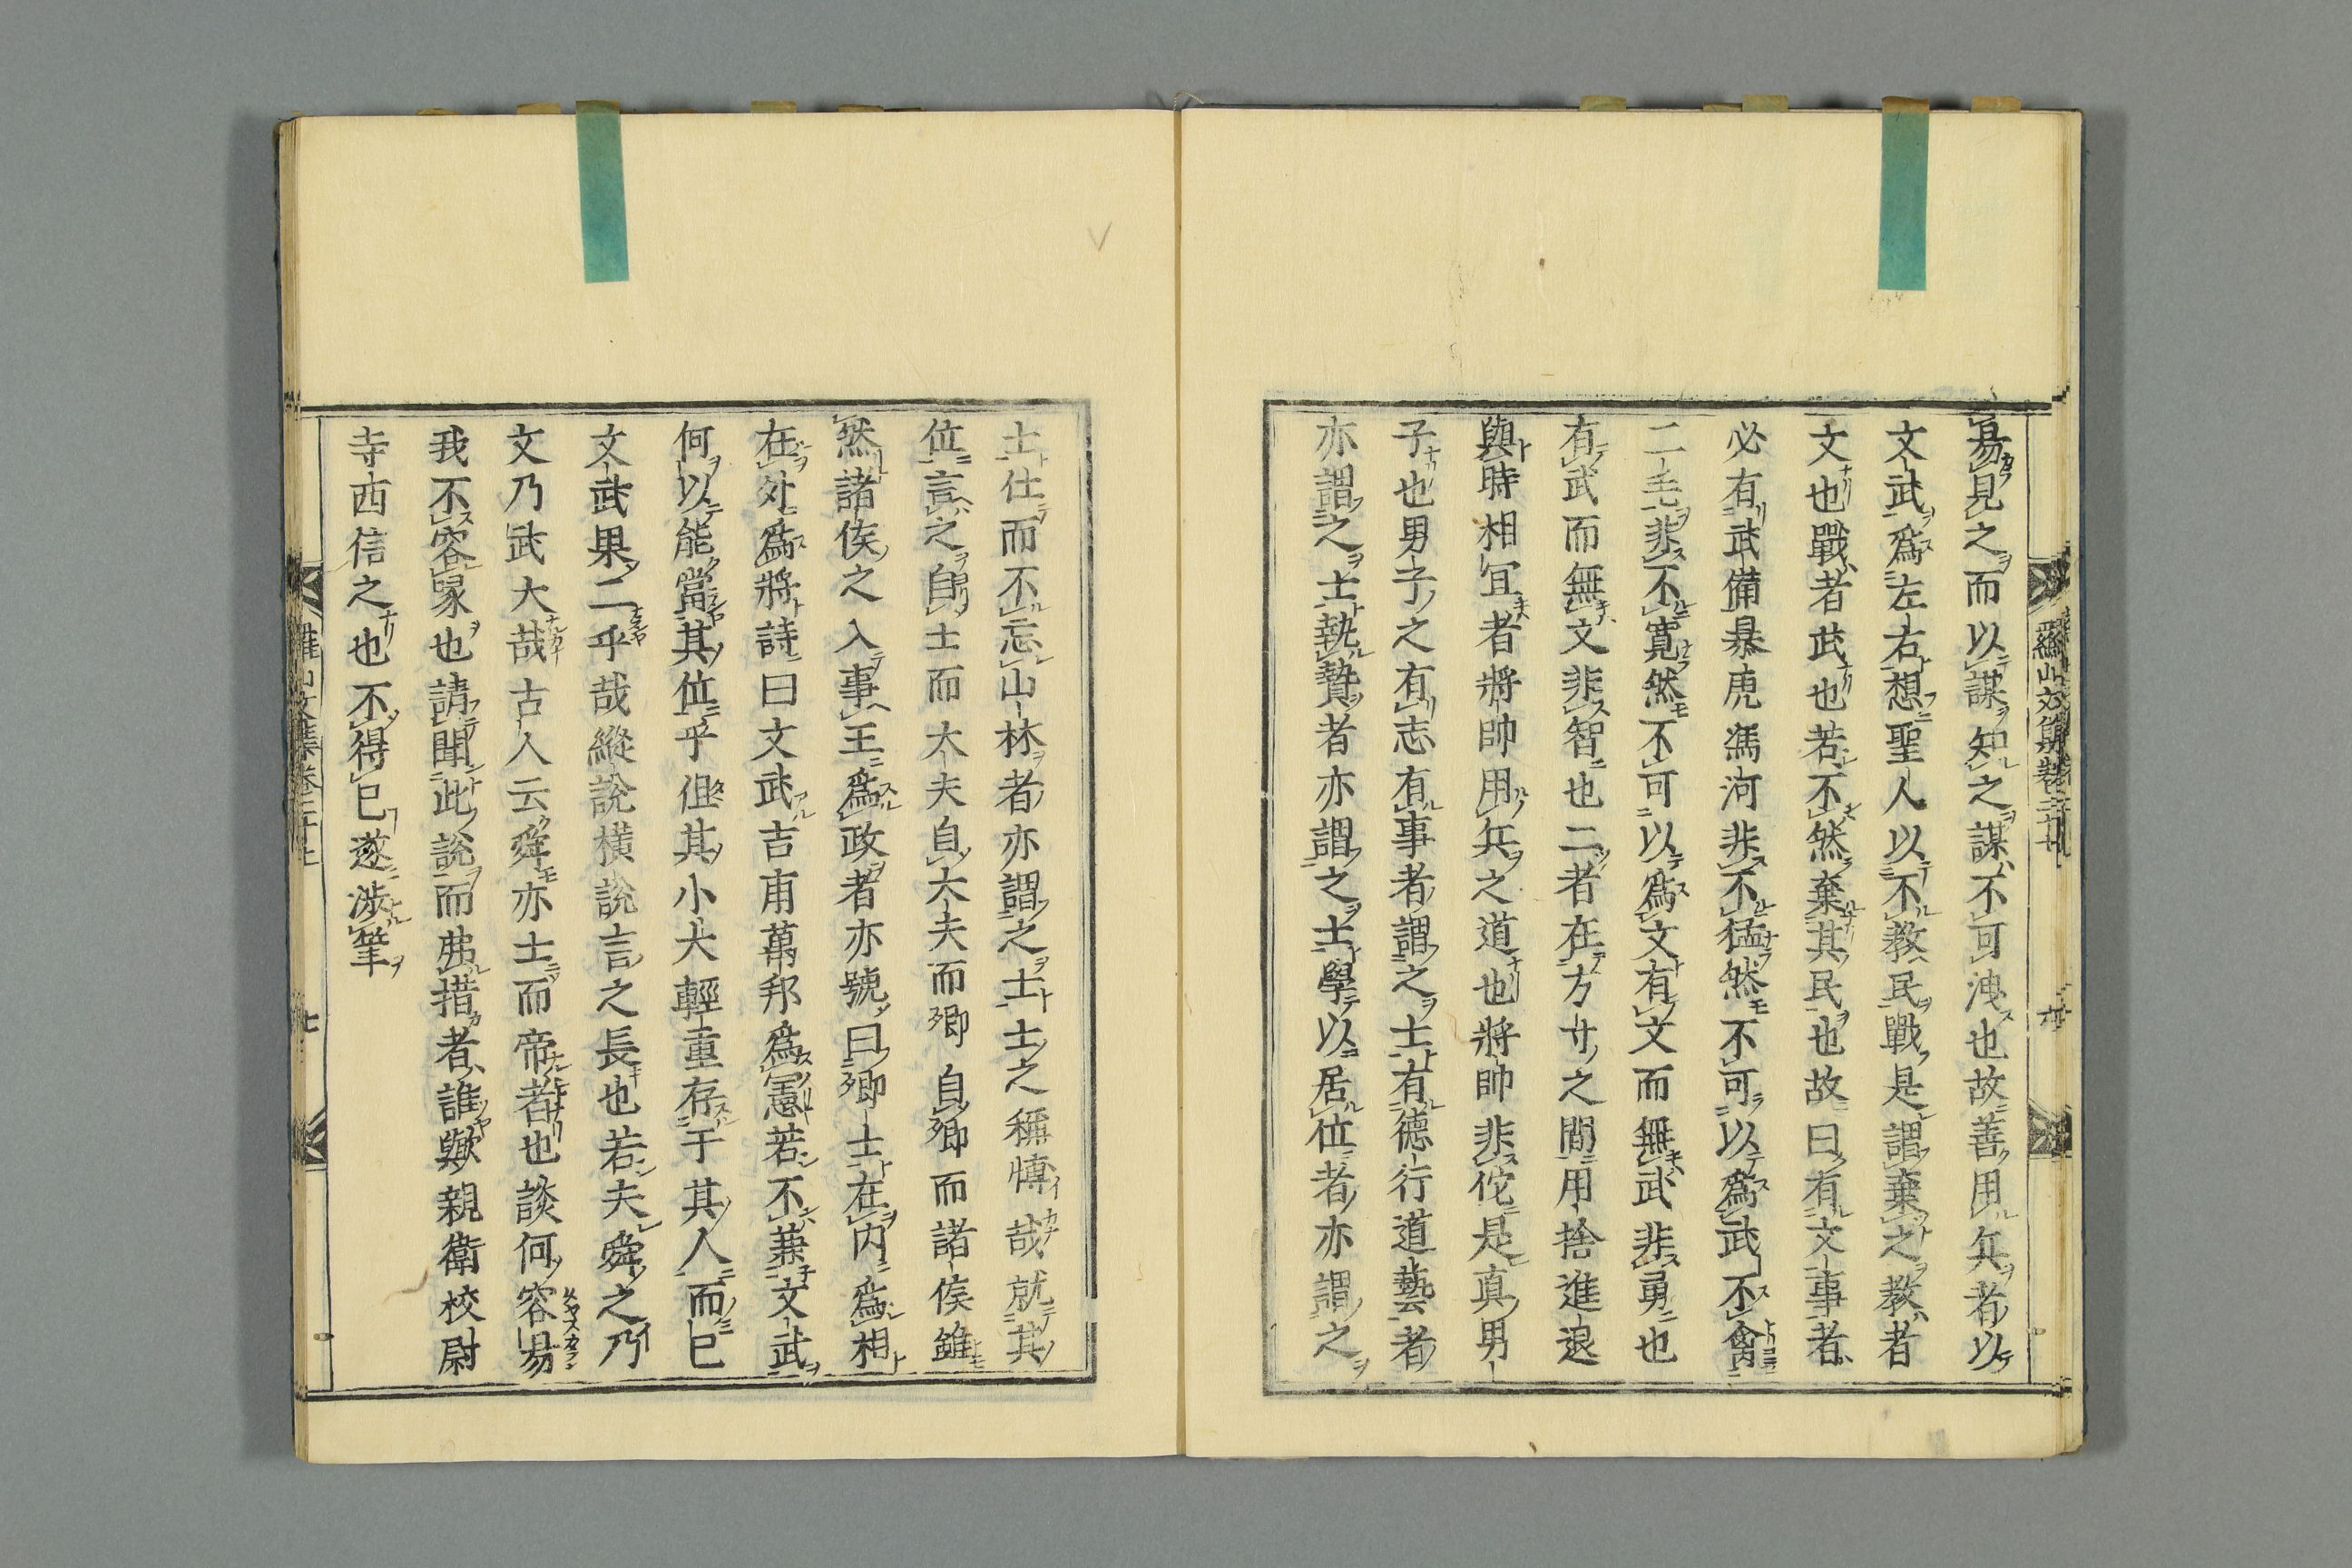 易見之而以謀知之謀不可洩也故善用兵者以
文武爲左右想聖人以不教民戰是謂棄之教者
文也戰者武也若不然棄其民也故曰有文事者
必有武備暴虎馮河非不猛然不可以爲武不禽
二毛非不寛然不可以爲文有文而無武非勇也
有武而無文非智也二者在方寸之間用捨進退
與時相冝者將帥用兵之道也將帥非佗是真男
子也男子之有志有事者謂之士有德行道藝者
亦謂之士執贄者亦謂之士學以居位者亦謂之
士仕而不忘山林者亦謂之士士之稱慱哉就其
位言之自士而大夫自大夫而卿自卿而諸侯雖
然諸侯之入事王爲政者亦號曰卿士在内爲相
在外爲將詩曰文武吉甫萬邦爲憲若不兼文武
何以能當其位乎但其小大輕重存于其人而已
文武果二乎哉縱說横說言之長也若夫舜之乃
文乃武大哉古人云舜亦士而帝者也談何容易
我不容喙也請聞此說而弗措者誰歟親衛校尉
寺西信之也不得已遂渉筆
羅山文集卷二十七
七